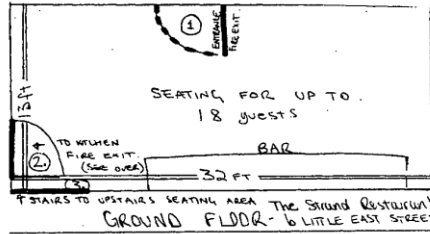 1
ENTRANCE
FIRE EXIT
13 ft
SEATING FOR UP TO
18 guests
TO KITCHEN
FIRE EXIT
(SEE OVER)
2.
BAR
32 FT
3.
STAIRS TO UPSTAIRS SEATING AREA
The Strand Restaurant
GROUND FLOOR - 6 LITTLE EAST STREET